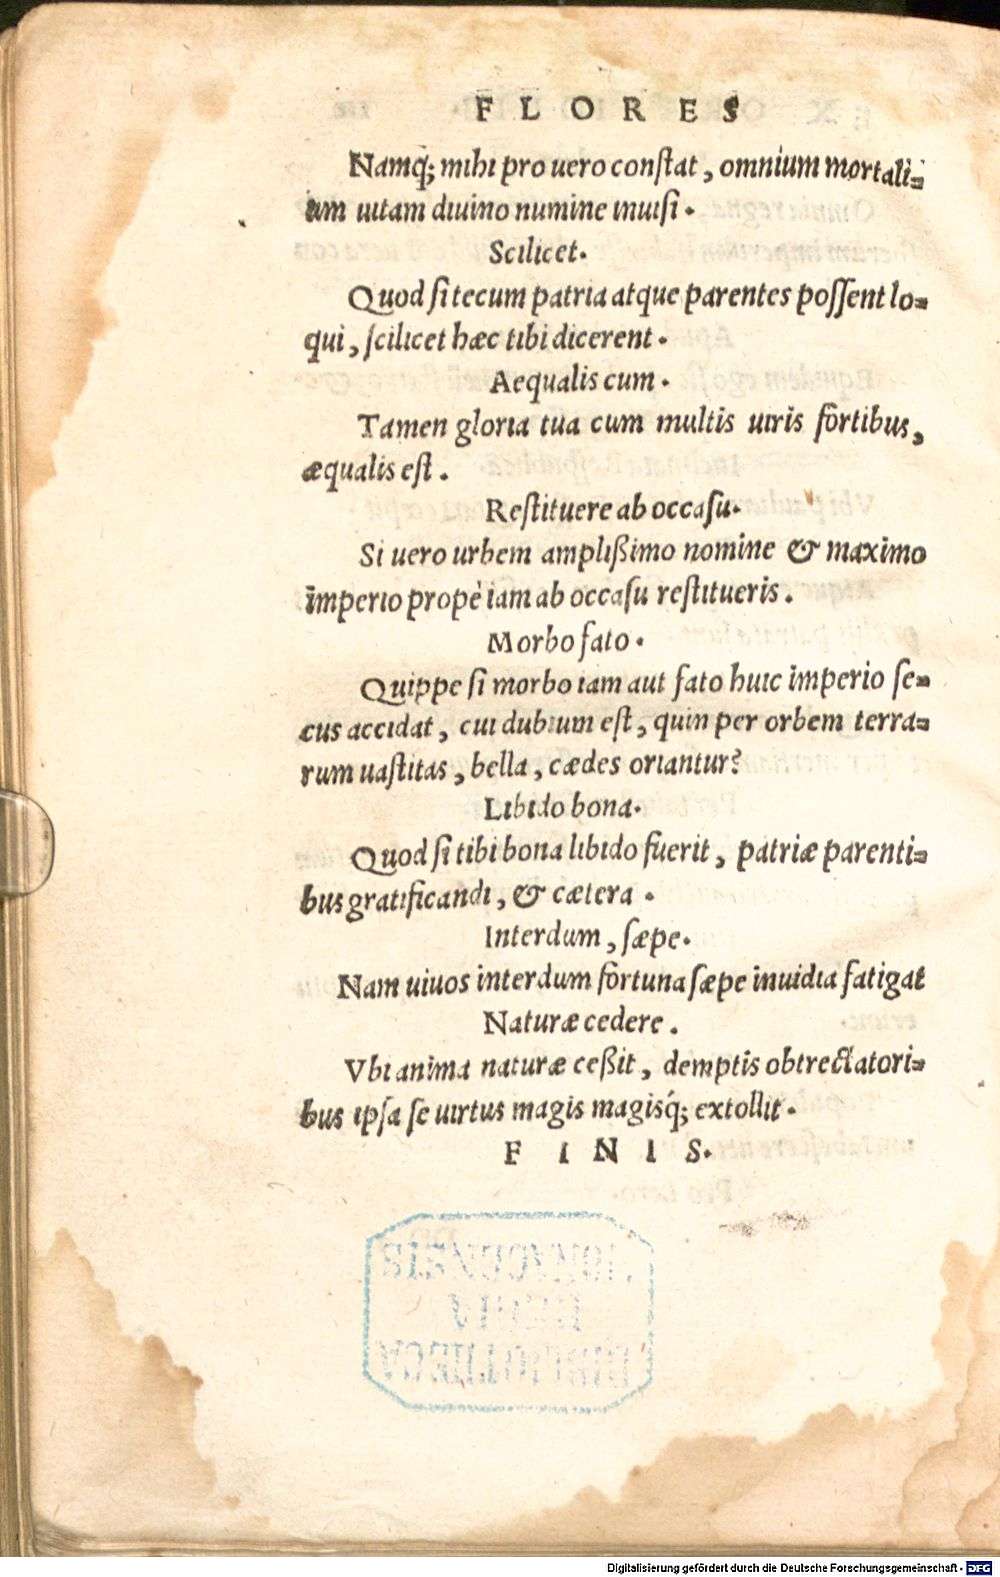 FLORES
Namq́; mihi pro uero conſtat, omnium mortali-
um uitam diuino numine inuiſi.
Scilicet.
Quod ſi tecum patria atque parentes poſſent lo-
qui, ſcilicet hæc tibi dicerent.
Aequalis cum.
Tamen gloria tua cum multis uiris fortibus,
æqualis eſt.
Reſtituere ab occaſu.
Si uero urbem ampliſsimo nomine & maximo
imperio propè iam ab occaſu reſtitueris.
Morbo fato.
Quippe ſi morbo iam aut fato huic imperio ſe-
cus accidat, cui dubium eſt, quin per orbem terra-
rum uaſtitas, bella, cædes oriantur?
Libido bona.
Quod ſi tibi bona libido fuerit, patriæ parenti-
bus gratificandi, & cætera.
Interdum, ſæpe.
Nam uiuos interdum fortuna ſæpe inuidia fatigat
Naturæ cedere.
Vbi anima naturæ ceſsit, demptis obtrectatori-
bus ipſa ſe uirtus magis magisq́; extollit.
FINIS.
MONACENSIS
REGIA
BIBLIOTHECA
Digitalisierung gefördert durch die Deutsche Forschungsgemeinschaft - DFG